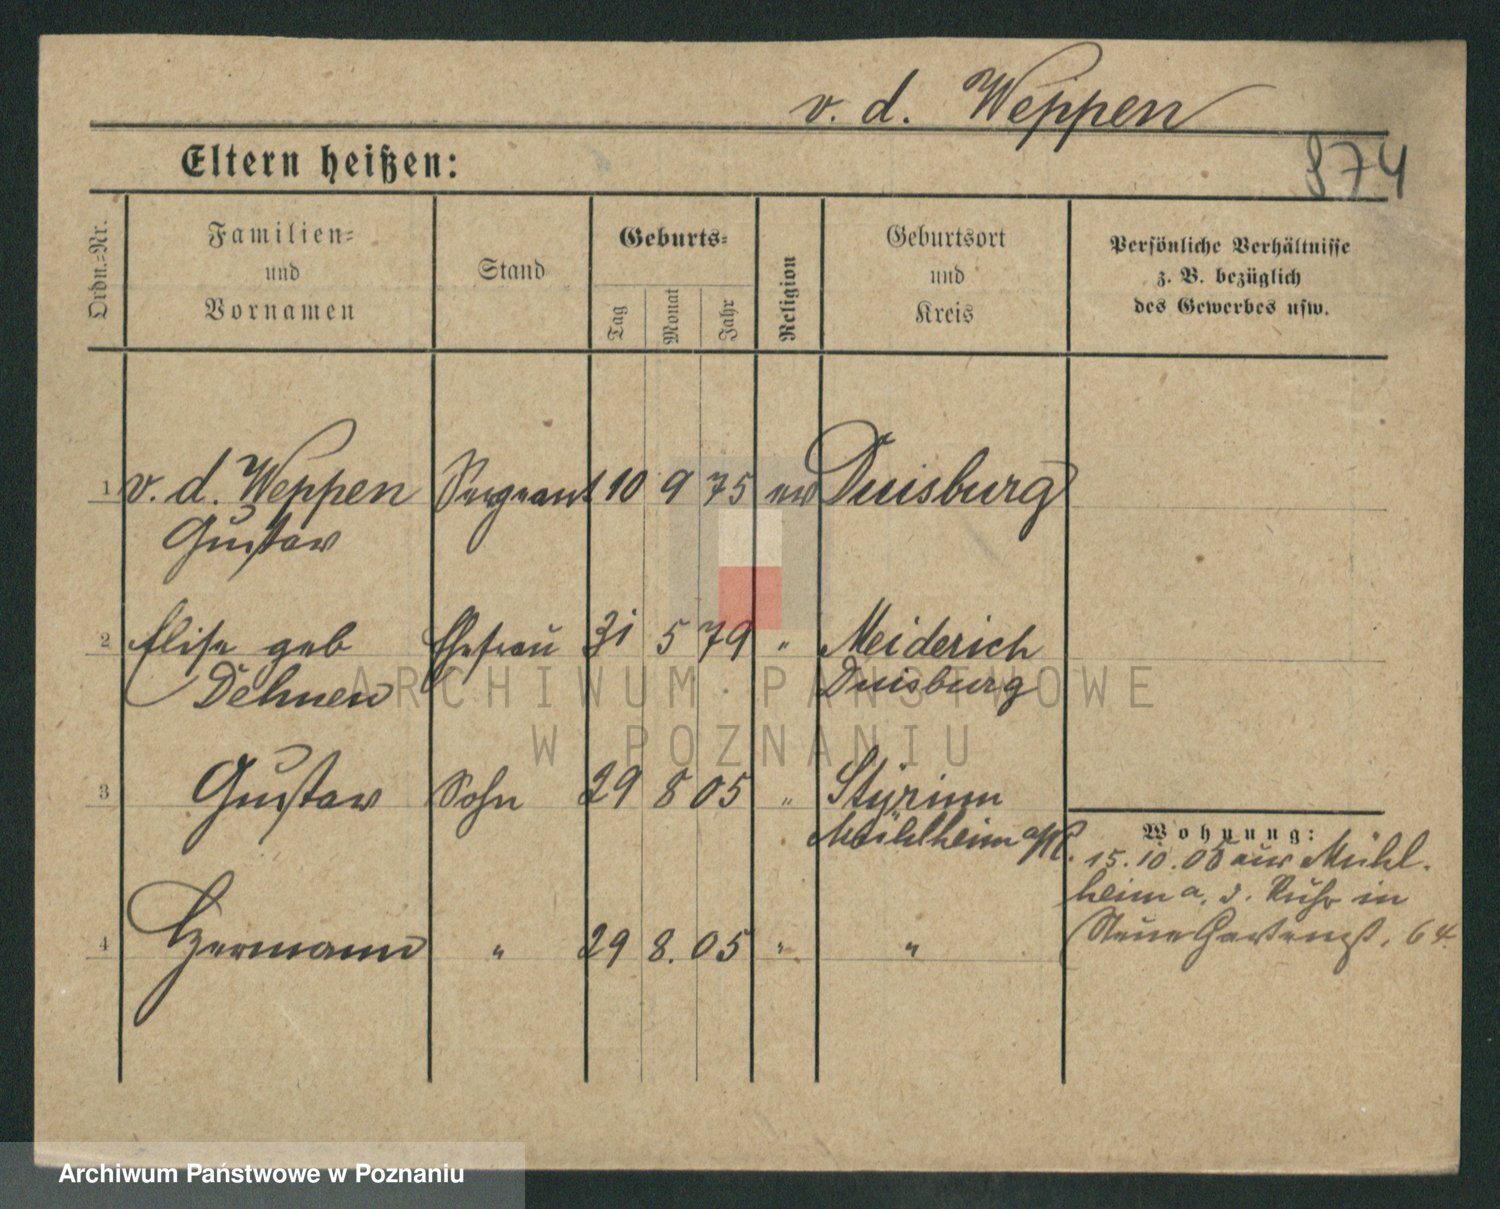 v. d. Weppen
874
Eltern heißen:
Ordn.-Nr.
Familien-
und
Vornamen
Stand
Geburts-
Tag
Monat
Jahr
Religion
Geburtsort
und
Kreis
Persönliche Verhältnisse
z. B. bezüglich
des Gewerbes usw.
1 v. d. Weppen Sergeant 10 9 75 ev Duisburg
Gustav
2 Elise geb Ehefrau 31 5 79 " Meiderich
Dehnen Duisburg
3 Gustav Sohn 29 8 05 " Styrum
Mühlheim a/R.
4 Hermann " 29 8. 05 " "
Wohnung:
15.10.05 aus Mühl-
heim a. d. Ruhr in
Neue Gartenst. 64.
ARCHIWUM PAŃSTWOWE
W POZNANIU
Archiwum Państwowe w Poznaniu